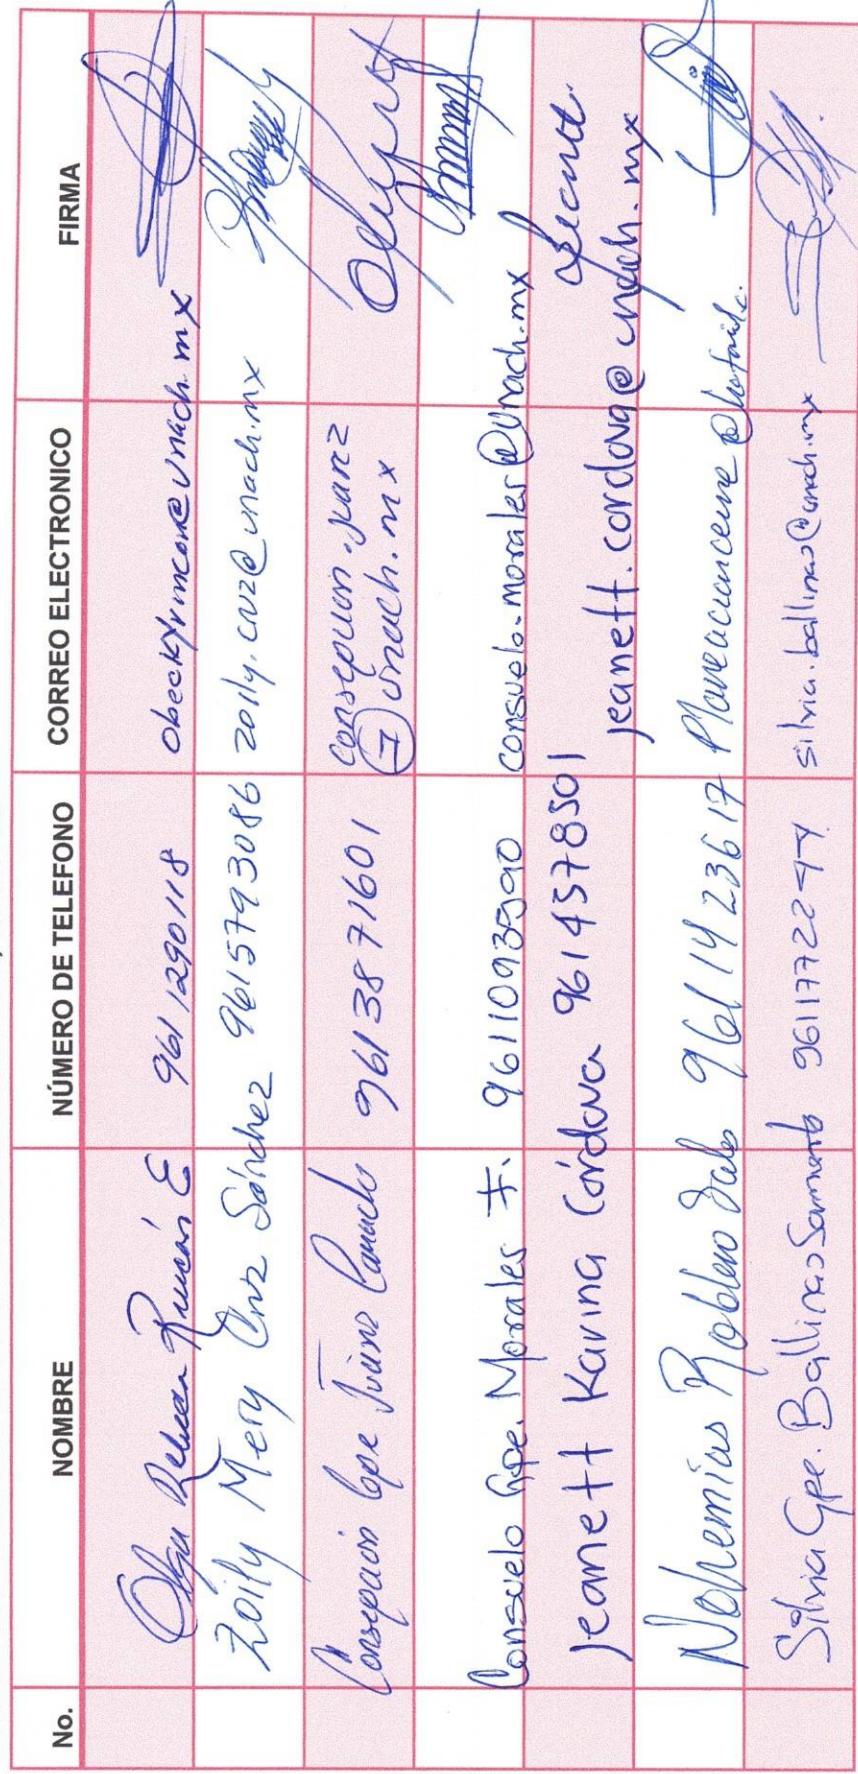 No. NOMBRE NÚMERO DE TELEFONO CORREO ELECTRONICO FIRMA
Olga Rebeca Rincón E 961 1290118 obeckyrincon@unach.mx
Zoily Mery Cruz Sánchez 9615793086 zoily.cruz@unach.mx
Consepcion Juárez Camacho 961 38 71601 consepcion.juarez
@unach.mx
Consuelo Gpe. Morales F. consuelo.morales@unach.mx
Jeanett Karina Córdova 9614578501 jeanett.cordova@unach.mx
Nohemías Roblero 961 14 23617
Silvia Gpe. Ballinas Sarmiento silvia.ballinas@unach.mx